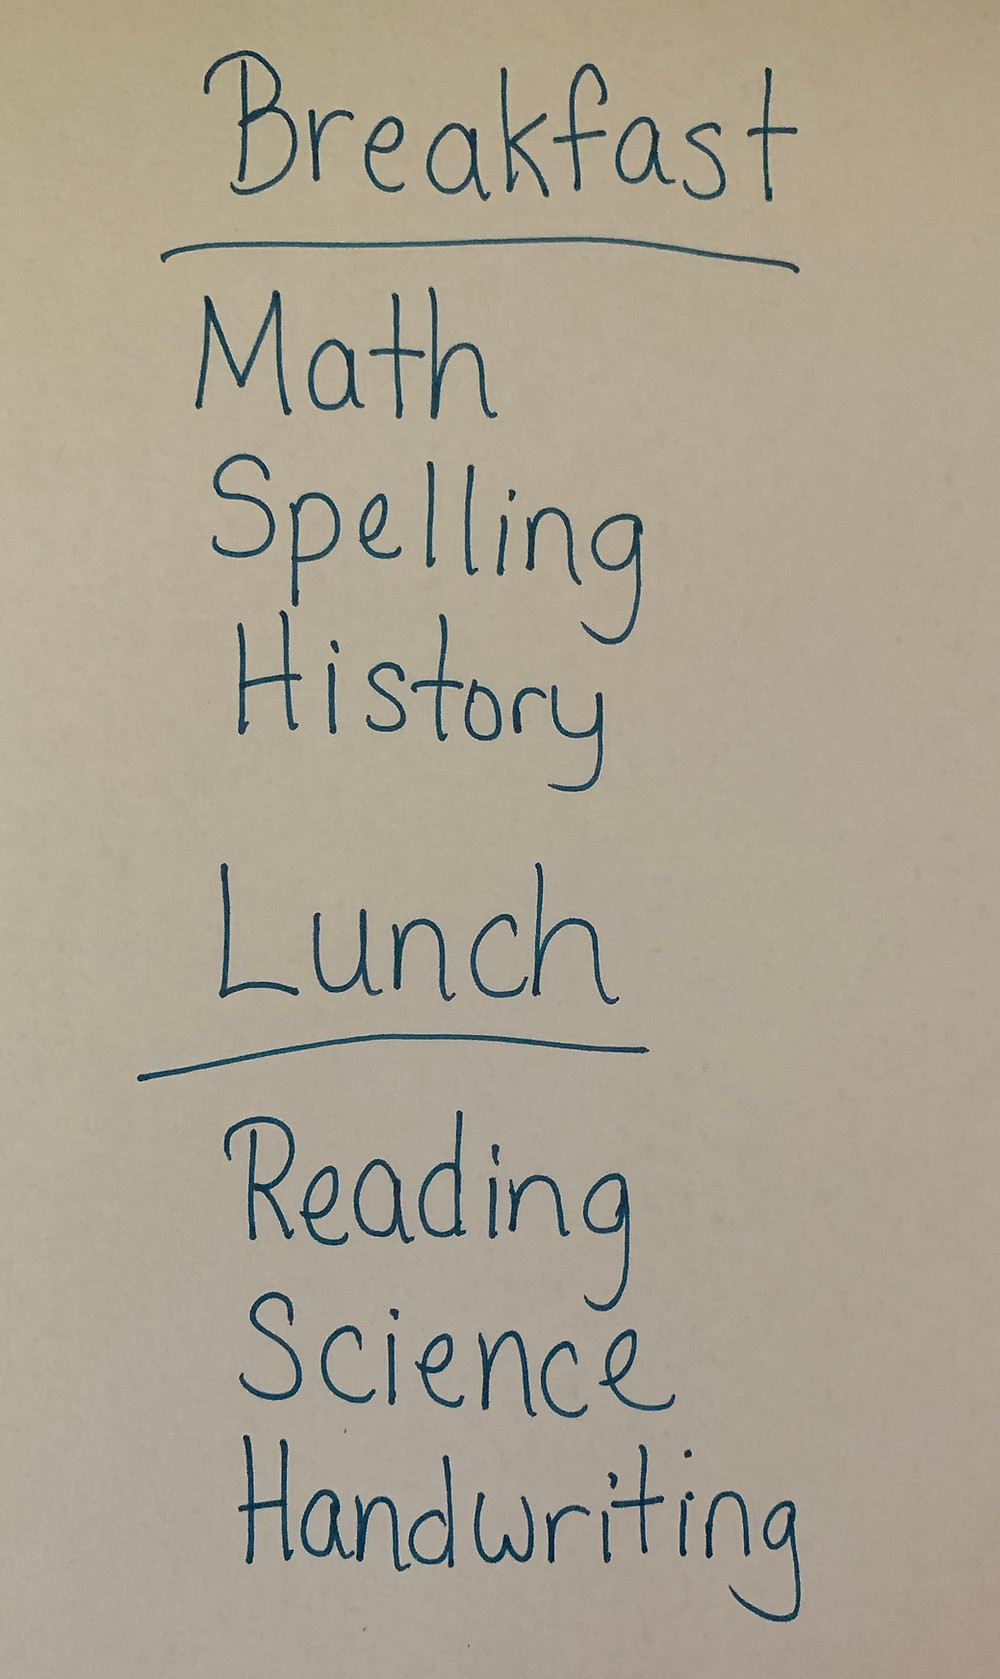 Breakfast
Math
Spelling
History
Lunch
Reading
Science
Handwriting